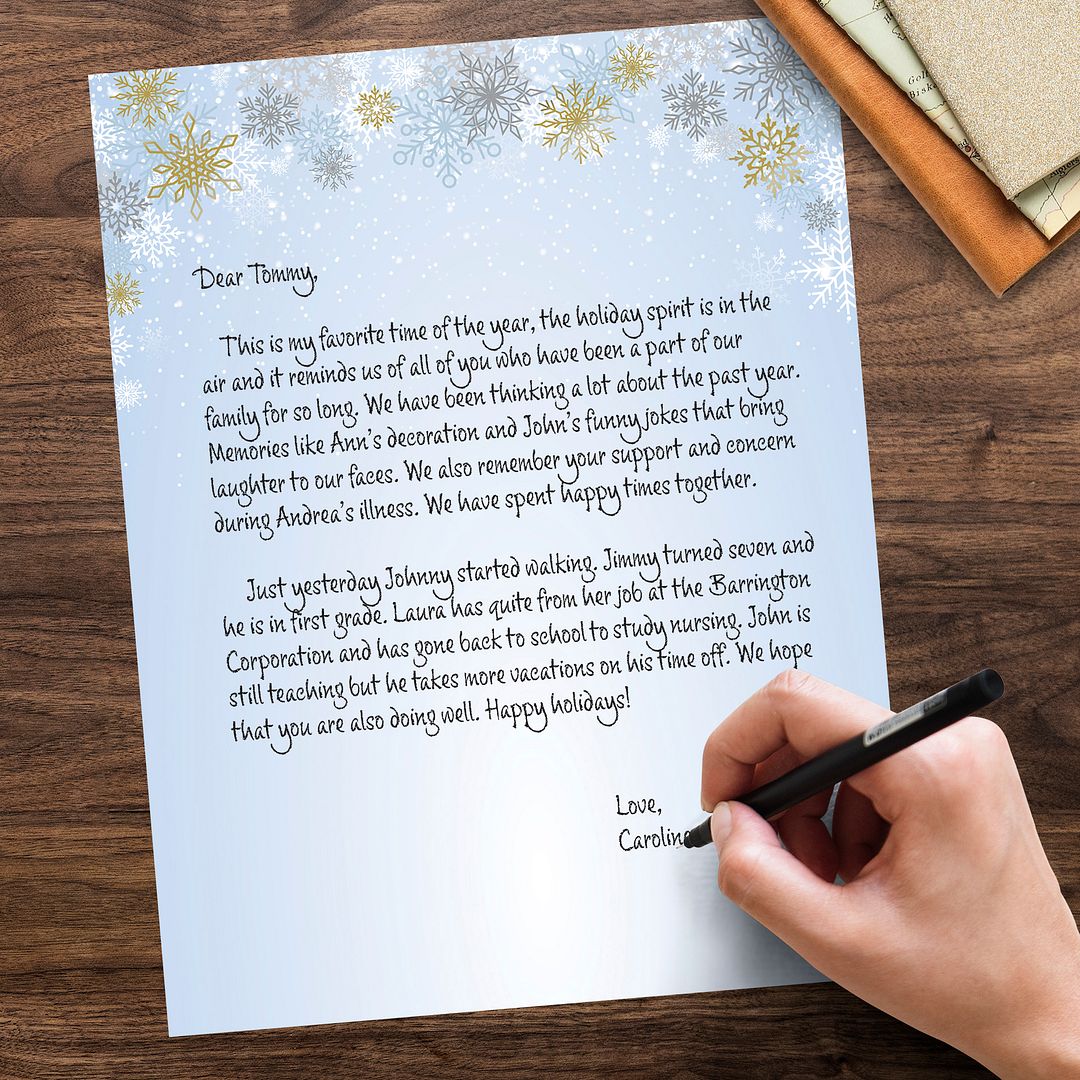 Dear Tommy,
This is my favorite time of the year, the holiday spirit is in the
air and it reminds us of all of you who have been a part of our
family for so long. We have been thinking a lot about the past year.
Memories like Ann's decoration and John's funny jokes that bring
laughter to our faces. We also remember your support and concern
during Andrea's illness. We have spent happy times together.
Just yesterday Johnny started walking. Jimmy turned seven and
he is in first grade. Laura has quite from her job at the Barrington
Corporation and has gone back to school to study nursing. John is
still teaching but he takes more vacations on his time off. We hope
that you are also doing well. Happy holidays!
Love,
Caroline